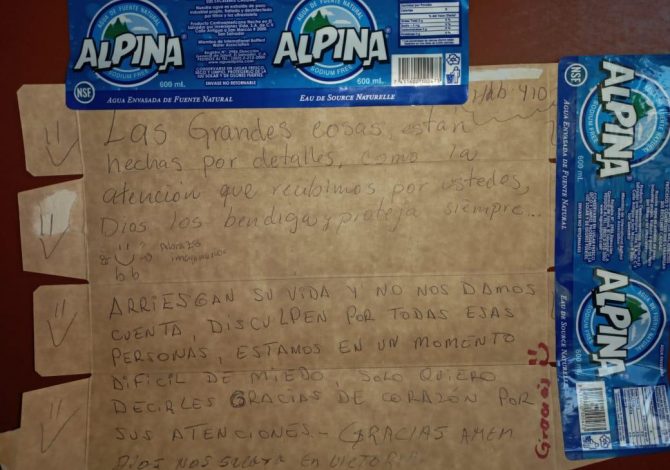 AGUA DE FUENTE NATURAL
ALPINA
SODIUM FREE
600 mL.
NSF
AGUA ENVASADA DE FUENTE NATURAL
ENVASE NO RETORNABLE
AGUA DE FUENTE NATURAL
ALPINA
SODIUM FREE
600 mL.
EAU DE SOURCE NATURELLE
Hab 410
Las Grandes cosas están
hechas por detalles, como la
atención que recibimos por ustedes,
Dios los bendiga y proteja siempre...
Abrazos
imaginarios
ARRIESGAN SU VIDA Y NO NOS DAMOS
CUENTA, DISCULPEN POR TODAS ESAS
PERSONAS, ESTAMOS EN UN MOMENTO
DIFICIL DE MIEDO, SOLO QUIERO
DECIRLES GRACIAS DE CORAZÓN POR
SUS ATENCIONES - GRACIAS AMEM
DIOS NOS
EN VICTORIA
Gracias
NSF
ALPINA
SODIUM FREE
600 mL.
AGUA ENVASADA DE FUENTE NATURAL
ALPINA
SODIUM FREE
600 mL.
EAU DE SOURCE NATURELLE